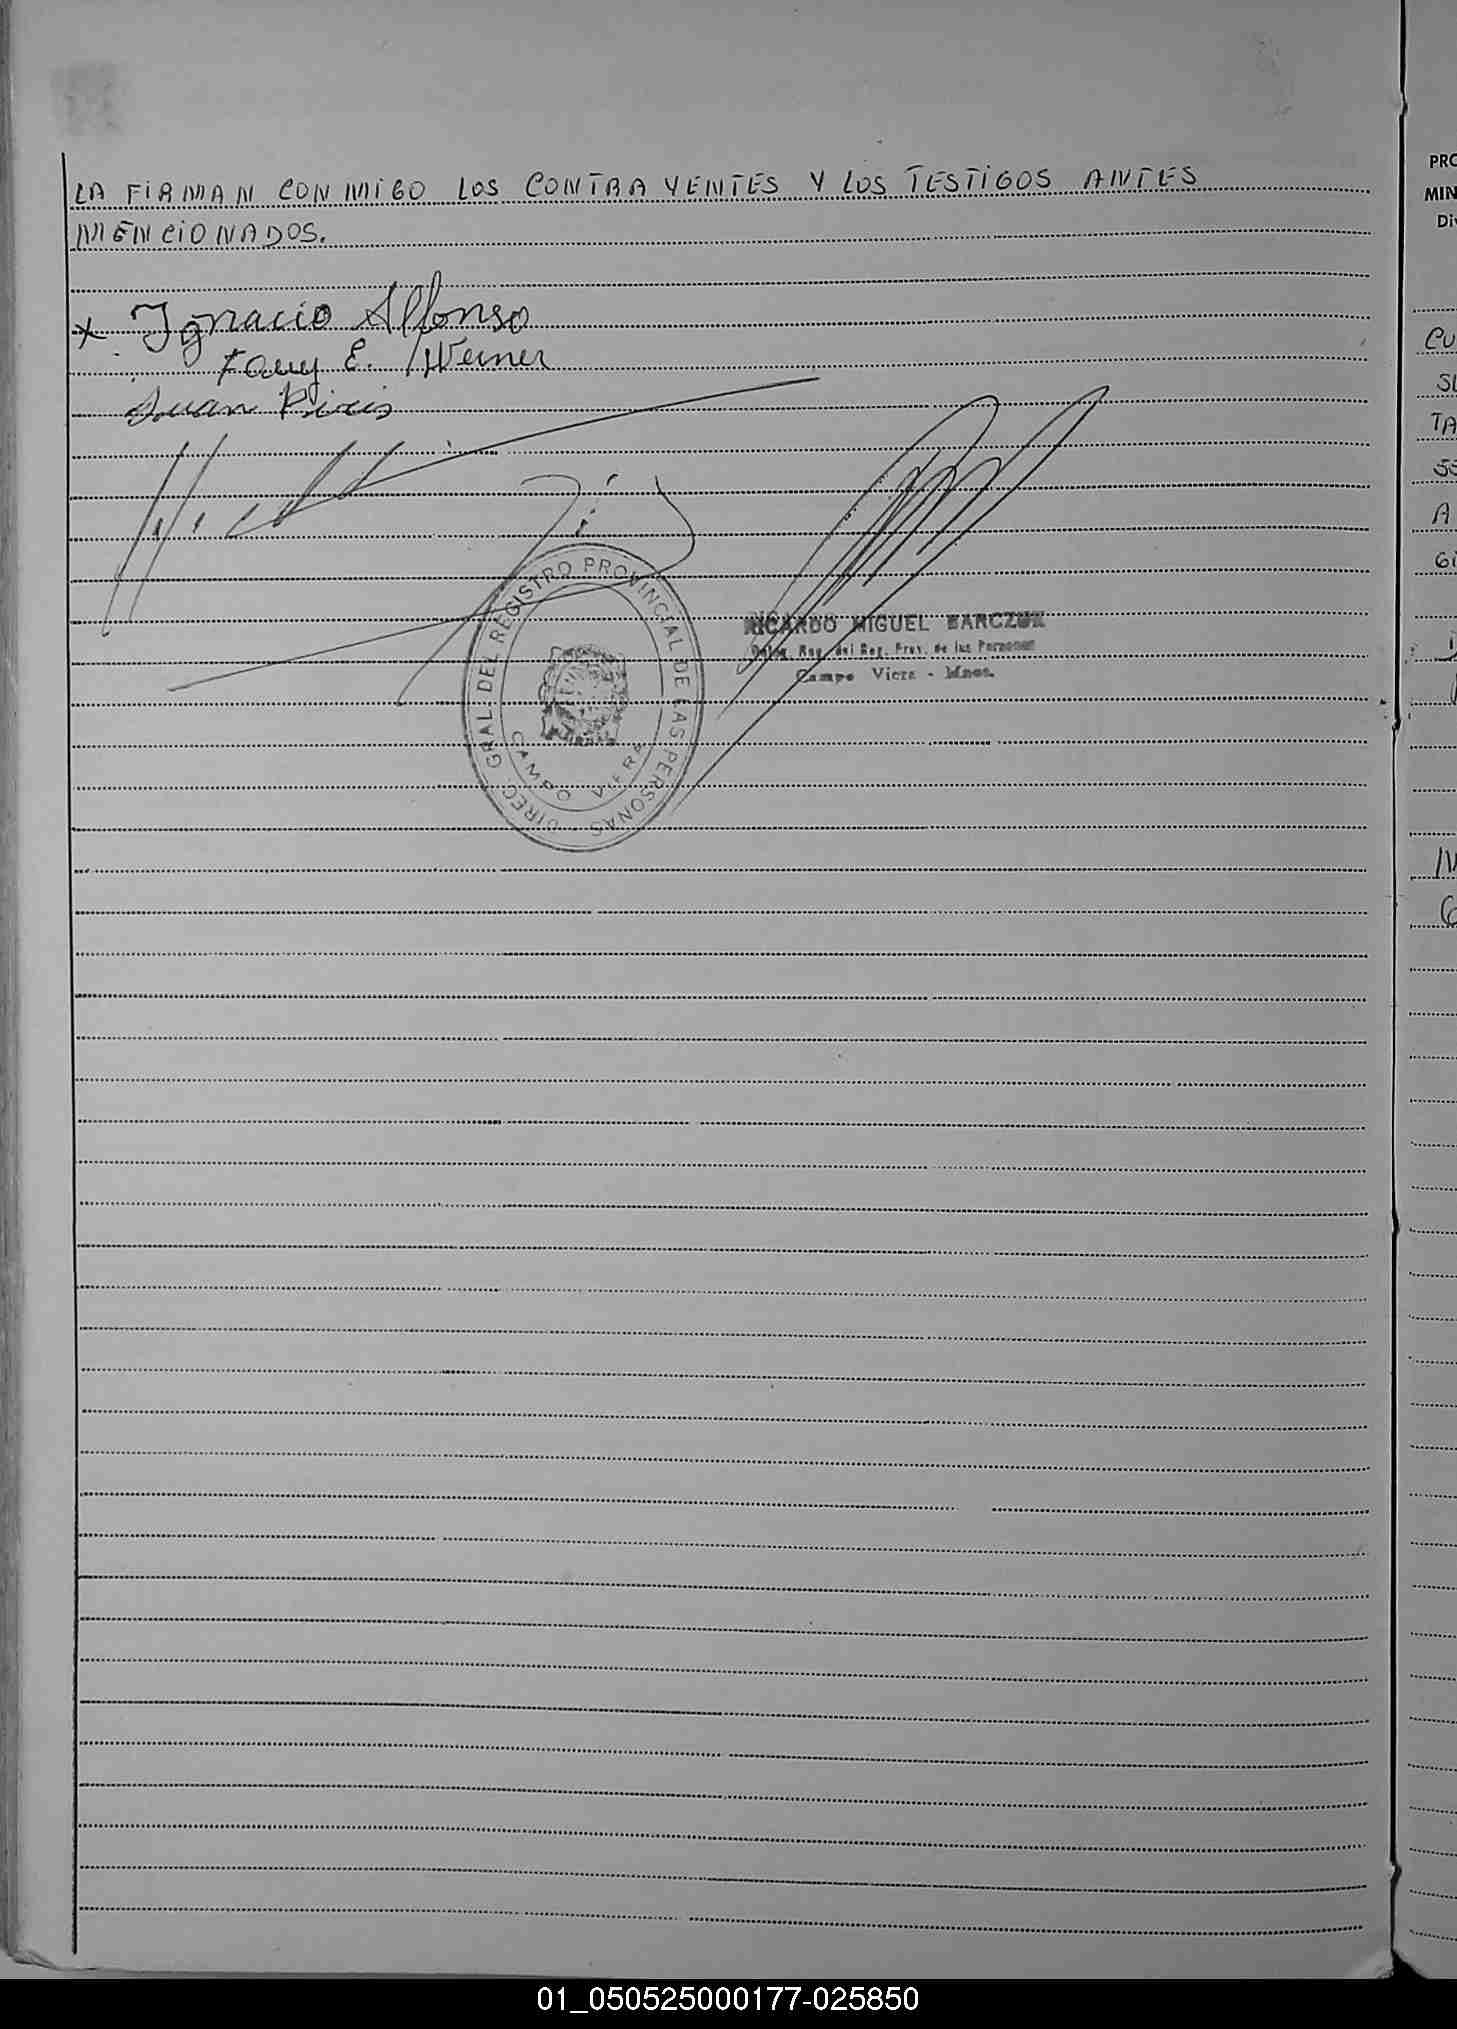 LA FIRMAN CONMIGO LOS CONTRAYENTES Y LOS TESTIGOS ANTES
MENCIONADOS.
x Ignacio Alfonso
Fany E. Werner
Juan Piris
DIREC. GRAL. DEL REGISTRO PROVINCIAL DE LAS PERSONAS
CAMPO VIERA
RICARDO MIGUEL BARCZUK
Deleg. Reg. del Reg. Prov. de las Personas
Campo Viera - Mnes.
PRO
MIN
Di
CU
SL
TA
A
01_050525000177-025850